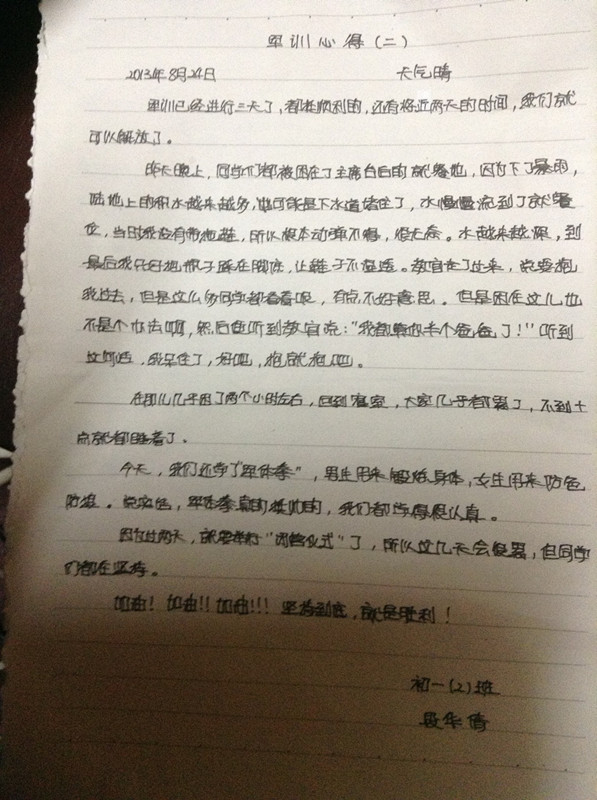 军训心得（二）
2013年8月24日 天气晴
军训已经进行三天了，都挺顺利的，还有将近两天的时间，我们就
可以解放了。
昨天晚上，同学们都被困在了主席台后的就餐地，因为下了暴雨，
陆地上的积水越来越多，也可能是下水道堵住了，水慢慢流到了就餐
位，当时我没有带拖鞋，所以根本动弹不得，很无奈。水越来越深，到
最后我只好把鞋子踩在脚底，让鞋子不湿透。教官走了过来，说要抱
我过去，但是这么多同学都看着呢，有点不好意思。但是困在这儿也
不是个办法啊，然后也听到教官说：“我都算你半个爸爸了！”听到
这句话，我呆住了，好吧，抱就抱吧。
在那儿几乎困了两个小时左右，回到寝室，大家几乎都累了，不到十
点就都睡着了。
今天，我们还学了“军体拳”，男生用来锻炼身体，女生用来防色
防狼。说实在，军体拳真的挺帅的，我们都学得很认真。
因为过两天，就要举行“闭营仪式”了，所以这几天会很累，但同学
们都在坚持。
加油！加油！！加油！！！坚持到底，就是胜利！
初一（2）班
段华倩